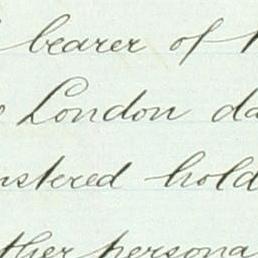 bearer of
London da
nstered hold
ther persona